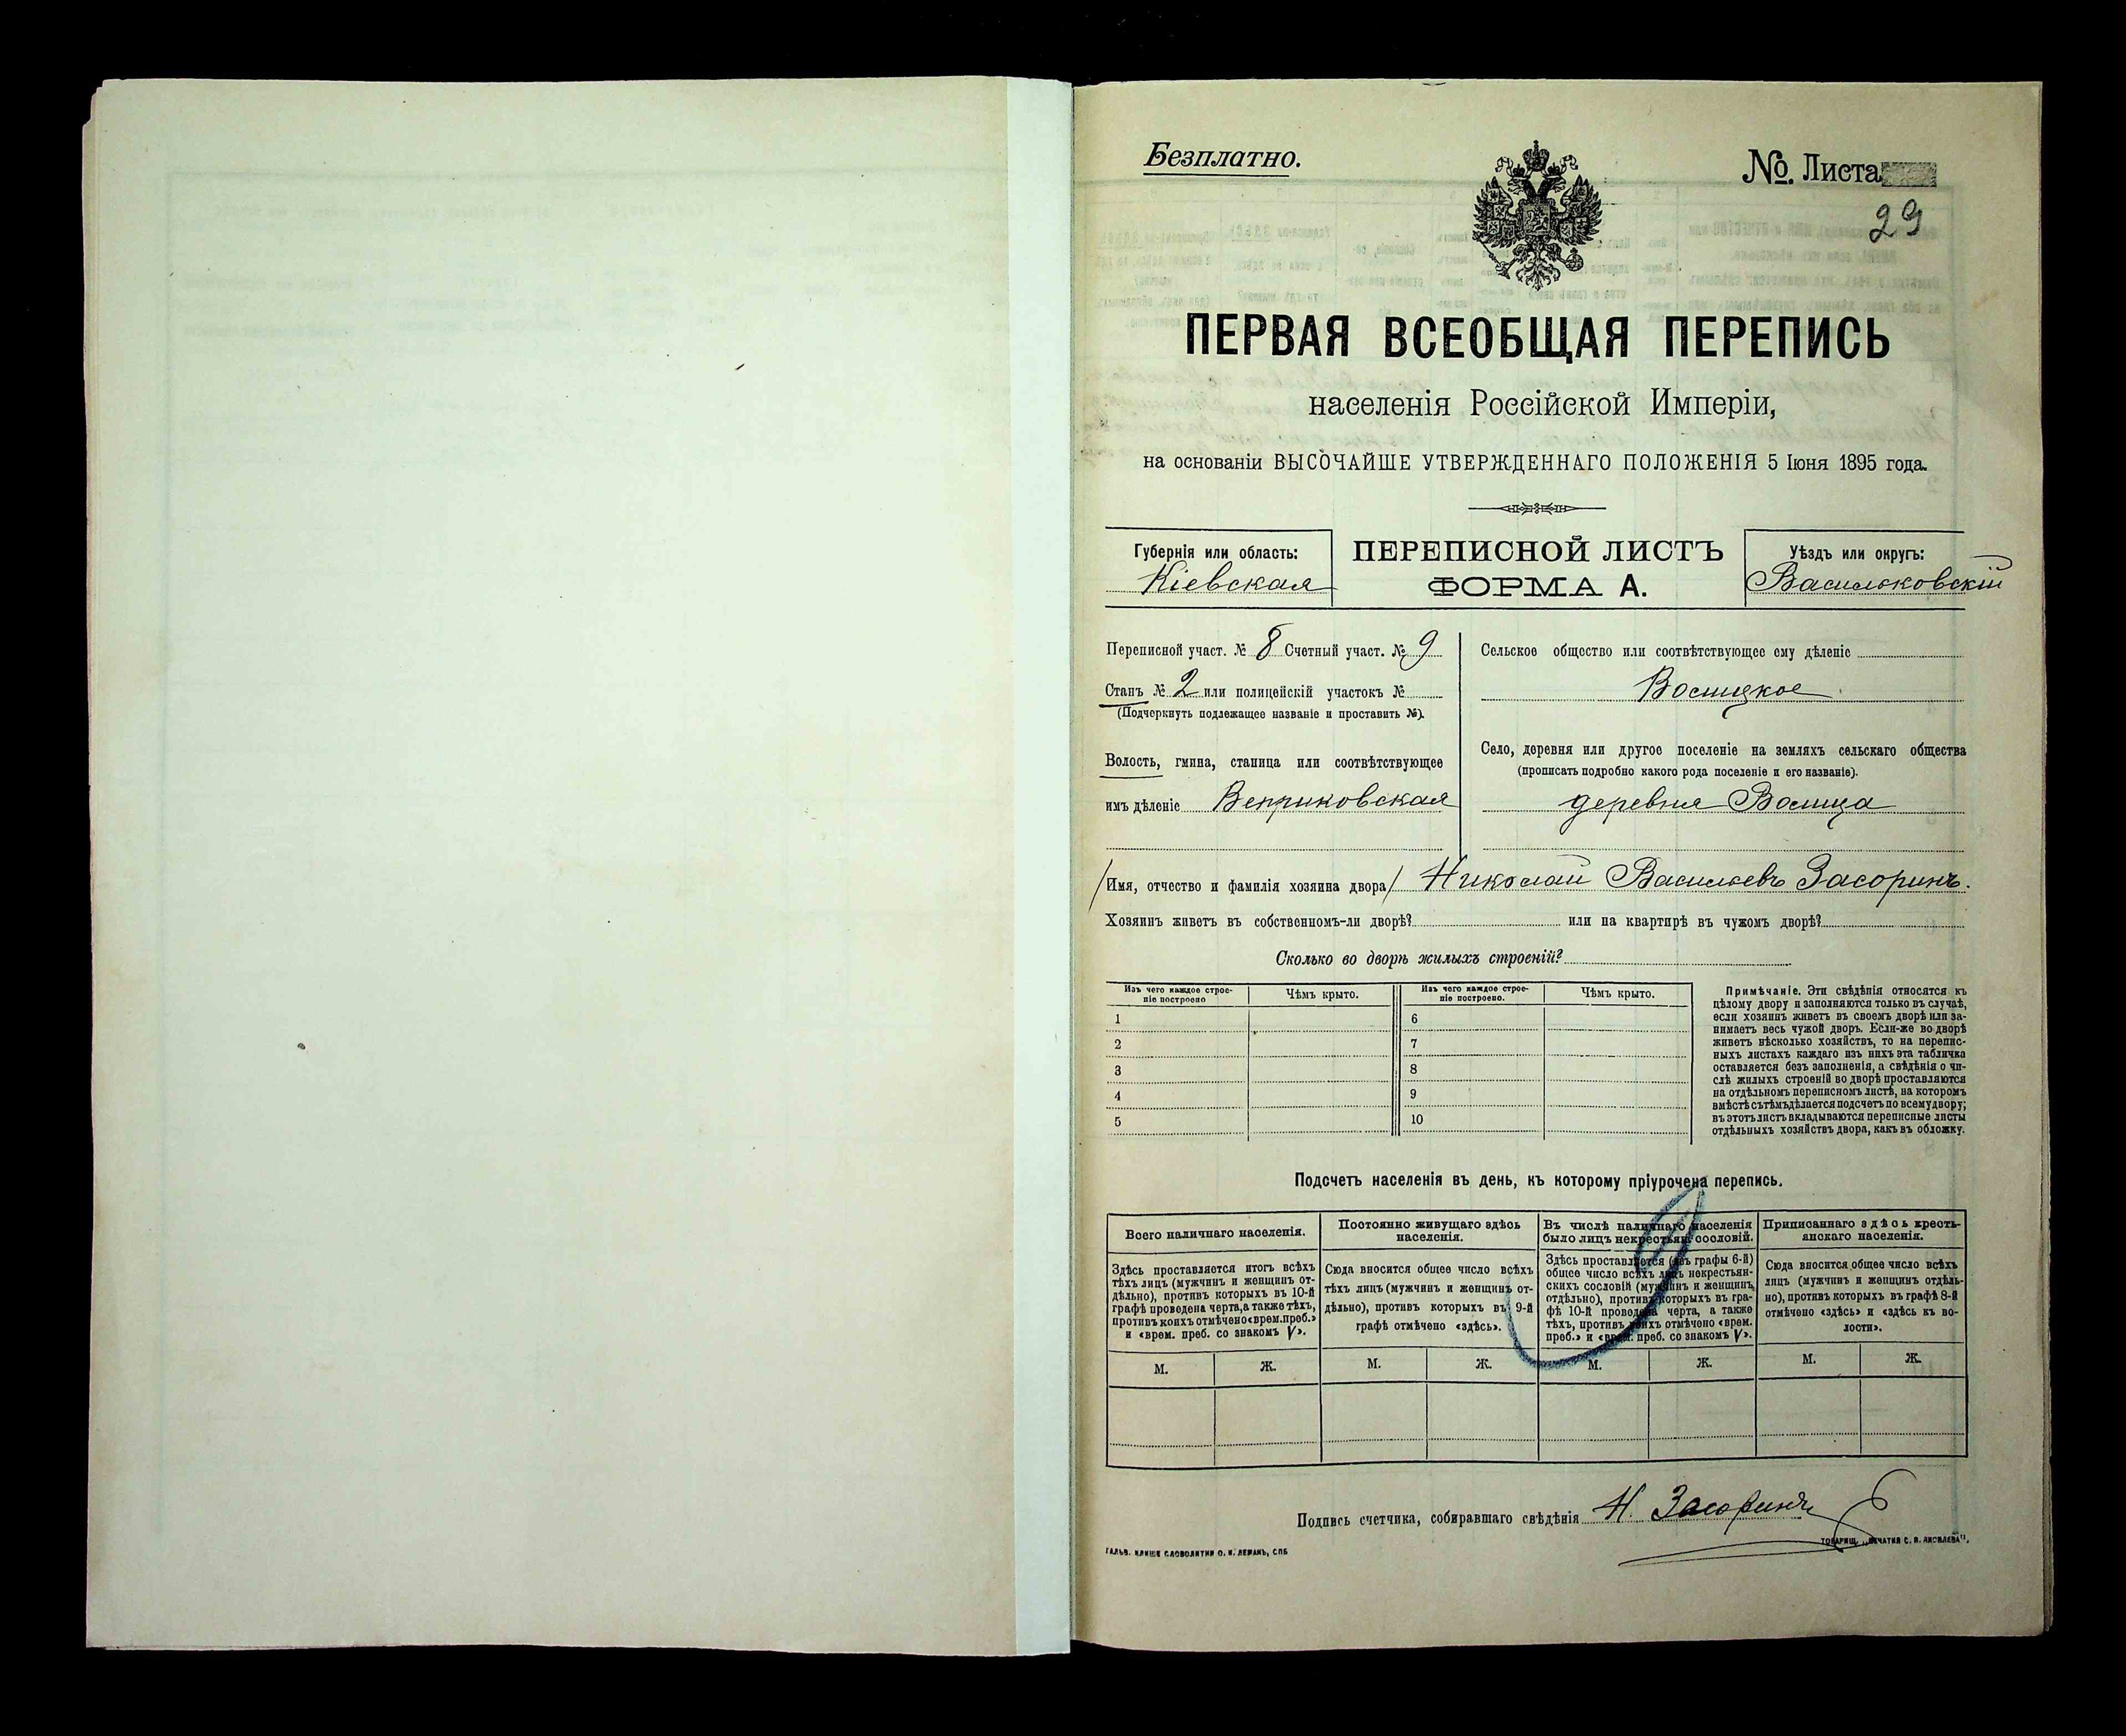 Безплатно.
№ Листа
29
ПЕРВАЯ ВСЕОБЩАЯ ПЕРЕПИСЬ
населенія Россійской Имперіи,
на основаніи ВЫСОЧАЙШЕ УТВЕРЖДЕННАГО ПОЛОЖЕНІЯ 5 Іюня 1895 года.
Губернія или область:
Кіевская
ПЕРЕПИСНОЙ ЛИСТЪ
ФОРМА А.
Уѣздъ или округъ:
Васильковскій
Переписной участ. № 8 Счетный участ. № 9
Станъ № 2 или полицейскій участокъ №
(Подчеркнуть подлежащее названіе и проставить №).
Волость, гмина, станица или соотвѣтствующее
имъ дѣленіе Веприковская
Сельское общество или соотвѣтствующее ему дѣленіе
Волицкое
Село, деревня или другое поселеніе на земляхъ сельскаго общества
(прописать подробно какого рода поселеніе и его названіе).
деревня Волица
Имя, отчество и фамилія хозяина двора Николай Васильевъ Засоринъ.
Хозяинъ живетъ въ собственномъ-ли дворѣ? или на квартирѣ въ чужомъ дворѣ?
Сколько во дворѣ жилыхъ строеній?
Изъ чего каждое строе-
ніе построено
Чѣмъ крыто.
Изъ чего каждое строе-
ніе построено.
Чѣмъ крыто.
1 6
2 7
3 8
4 9
5 10
Примѣчаніе. Эти свѣдѣнія относятся къ
цѣлому двору и заполняются только въ случаѣ,
если хозяинъ живетъ въ своемъ дворѣ или за-
нимаетъ весь чужой дворъ. Если-же во дворѣ
живетъ нѣсколько хозяйствъ, то на перепис-
ныхъ листахъ каждаго изъ нихъ эта табличка
оставляется безъ заполненія, а свѣдѣнія о чи-
слѣ жилыхъ строеній во дворѣ проставляются
на отдѣльномъ переписномъ листѣ, на которомъ
вмѣстѣ съ тѣмъ дѣлается подсчетъ по всему двору;
въ этотъ листъ вкладываются переписные листы
отдѣльныхъ хозяйствъ двора, какъ въ обложку.
Подсчетъ населенія въ день, къ которому пріурочена перепись.
Всего наличнаго населенія.
Здѣсь проставляется итогъ всѣхъ
тѣхъ лицъ (мужчинъ и женщинъ от-
дѣльно), противъ которыхъ въ 10-й
графѣ проведена черта, а также тѣхъ,
противъ коихъ отмѣчено «врем. преб.»
и «врем. преб. со знакомъ V».
Постоянно живущаго здѣсь
населенія.
Сюда вносится общее число всѣхъ
тѣхъ лицъ (мужчинъ и женщинъ от-
дѣльно), противъ которыхъ въ 9-й
графѣ отмѣчено «здѣсь».
Въ числѣ наличнаго населенія
было лицъ некрестьян. сословій.
Здѣсь проставляется (изъ графы 6-й)
общее число всѣхъ лицъ некрестьян-
скихъ сословій (мужчинъ и женщинъ
отдѣльно), противъ которыхъ въ гра-
фѣ 10-й проведена черта, а также
тѣхъ, противъ коихъ отмѣчено «врем.
преб.» и «врем. преб. со знакомъ V».
Приписаннаго здѣсь кресть-
янскаго населенія.
Сюда вносится общее число всѣхъ
лицъ (мужчинъ и женщинъ отдѣль-
но), противъ которыхъ въ графѣ 8-й
отмѣчено «здѣсь» и «здѣсь къ во-
лости».
М. Ж. М. Ж. М. Ж. М. Ж.
Подпись счетчика, собиравшаго свѣдѣнія Н. Засоринъ
ГАЛЬВ. КЛИШЕ СЛОВОЛИТНИ О. И. ЛЕМАНЪ, СПБ
ТОВАРИЩ. „ПЕЧАТНЯ С. П. ЯКОВЛЕВА“.